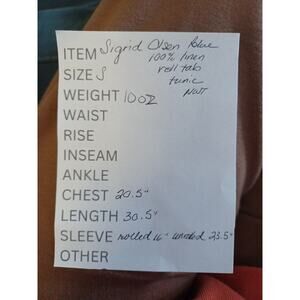 ITEM Sigrid Olsen Blue
100% linen
roll tab
SIZE S
tunic
NWT
WEIGHT 10oz
WAIST
RISE
INSEAM
ANKLE
CHEST 20.5"
LENGTH 30.5"
SLEEVE rolled 16" unrolled 23.5"
OTHER